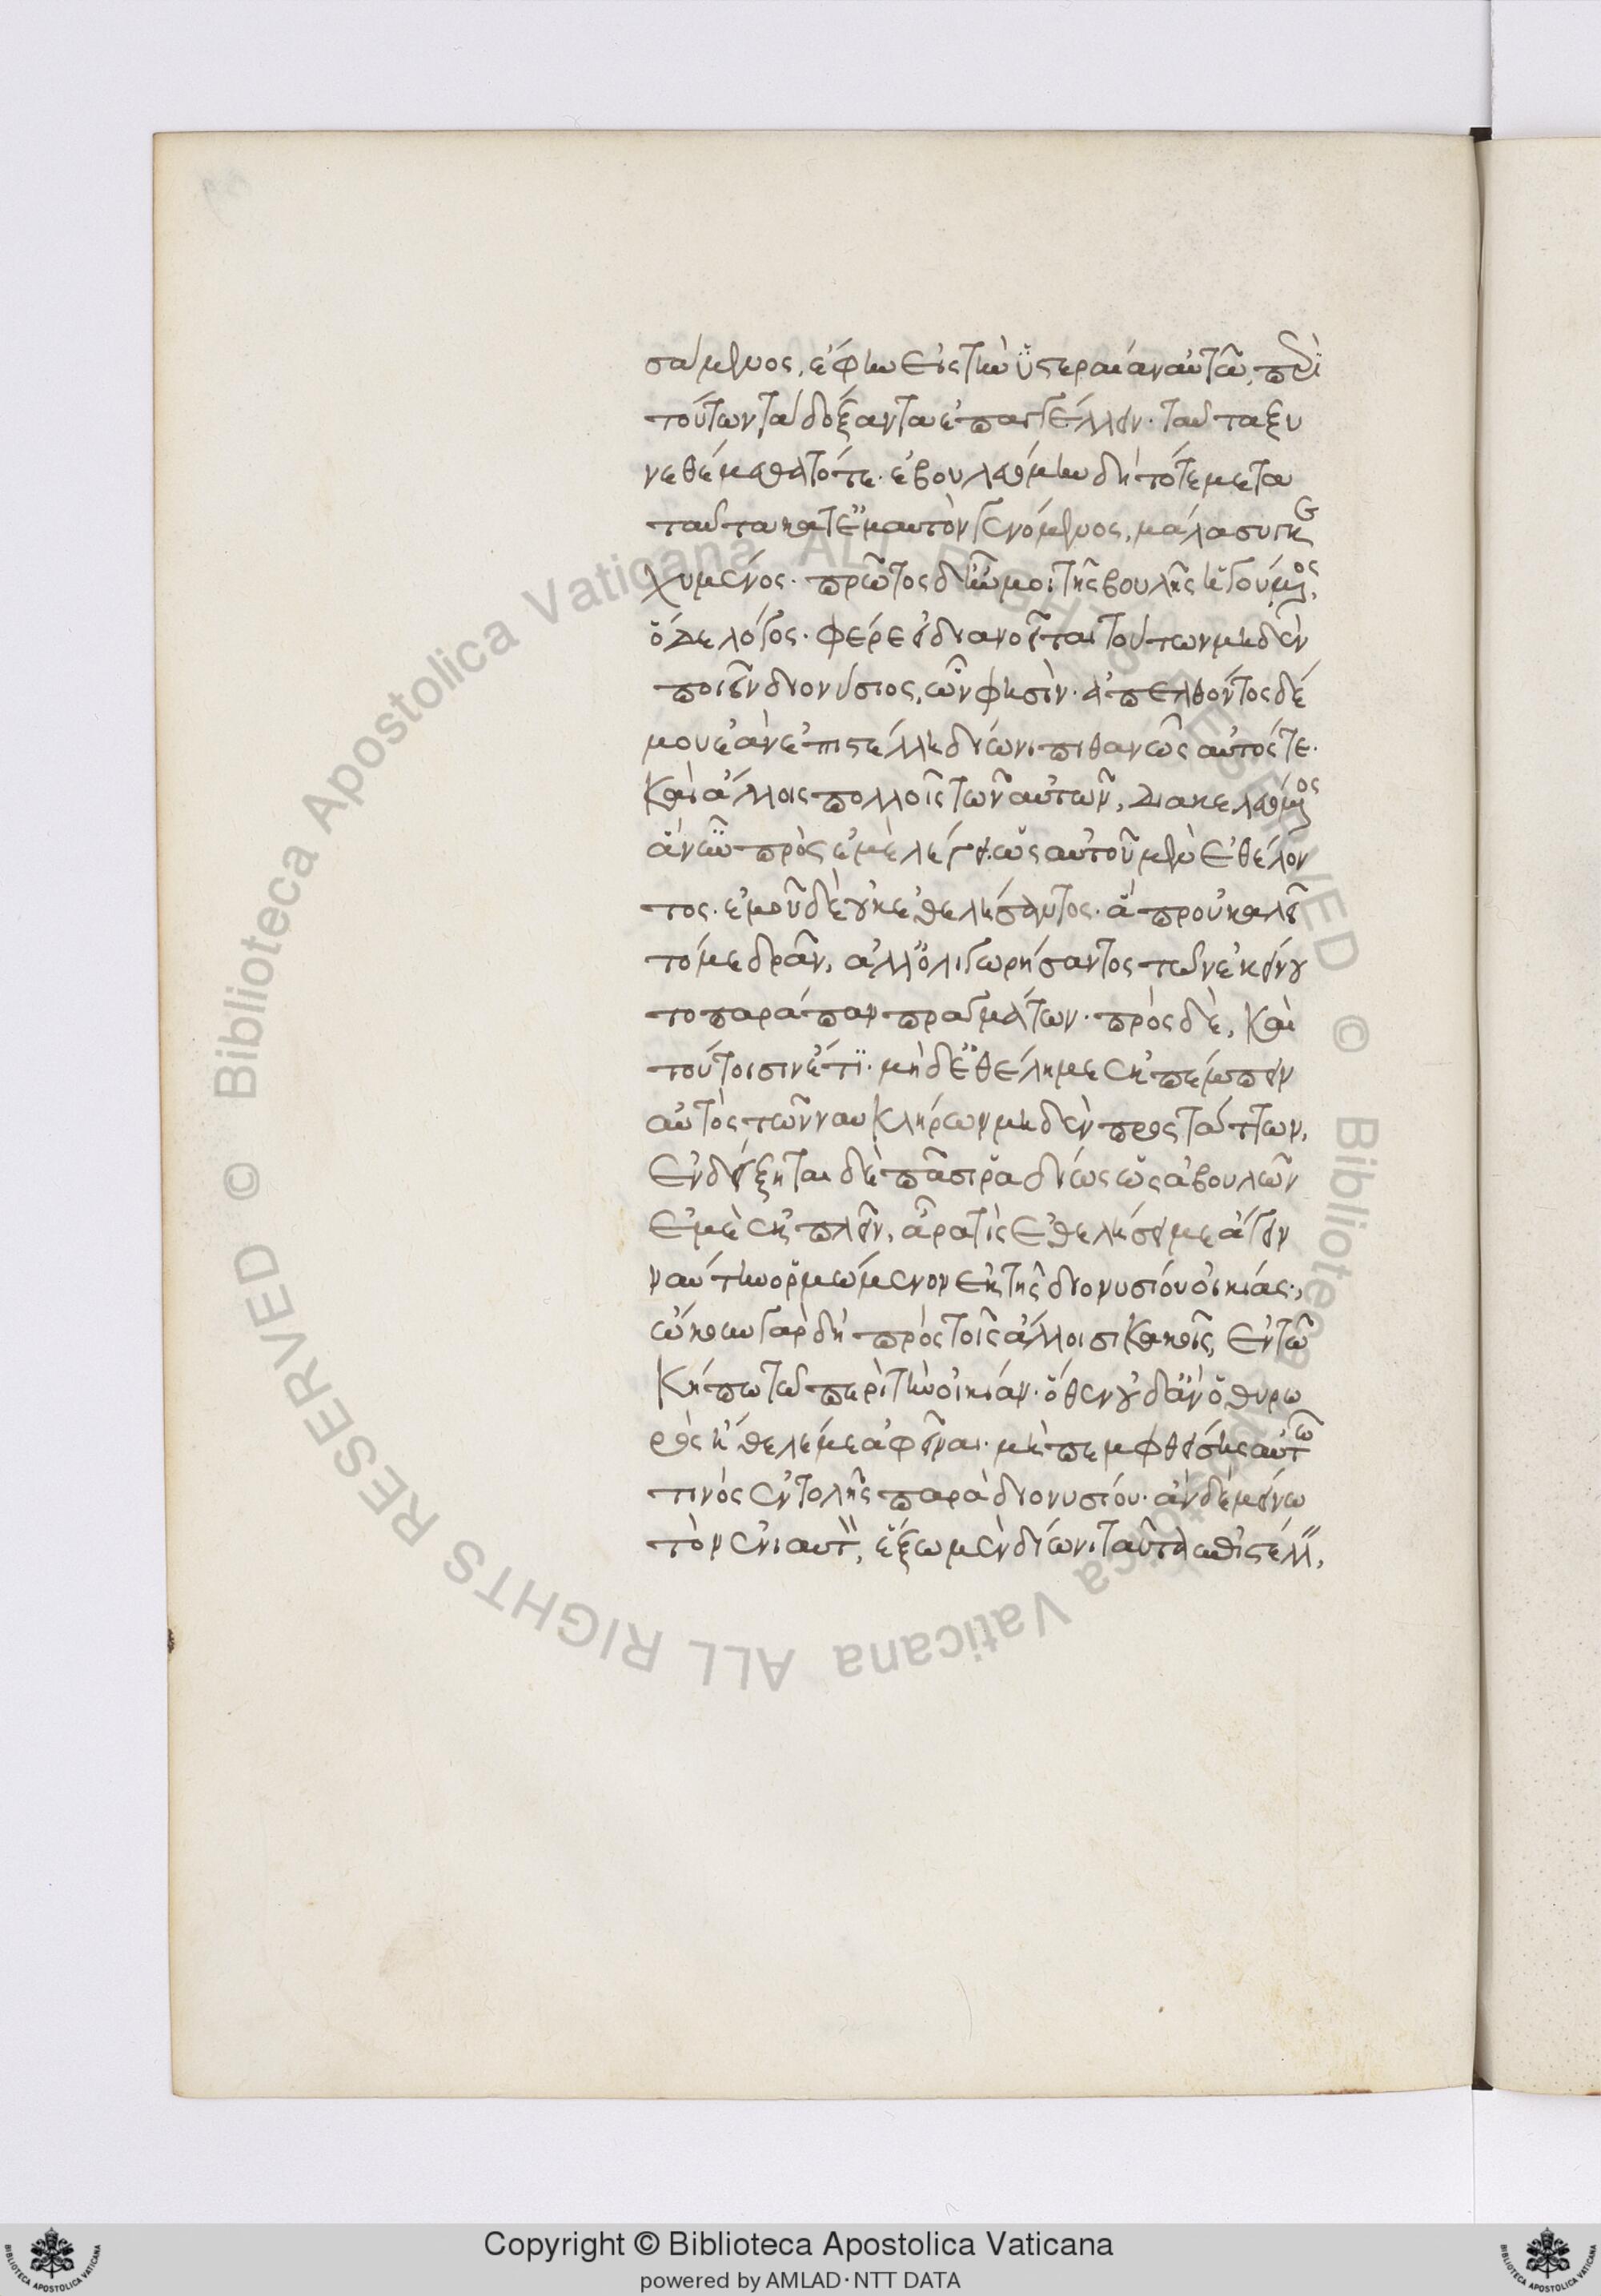 σάμενος, ἔφην εἰς τὴν ὑστεραίαν αὐτῶ, περὶ
τούτων τὰ δόξαντα ἐπαγγέλλειν· ταῦτα ξυ
νεθέμεθα τότε· ἐβουλευόμην δὴ τότε μετὰ
ταῦτα κατ' ἐμαυτὸν γενόμενος, μάλα συγκε
χυμένος· πρῶτος δ' ἦν μοι τῆς βουλῆς ἡγούμενος,
ὅδε λόγος· φέρε εἰ διανοεῖται τούτων μηδὲν
ποιεῖν διονύσιος, ὧν φησὶν· ἀπελθόντος δέ
μου ἐὰν ἐπιστέλλη δίωνι πιθανῶς αὐτός τε·
καὶ ἄλλοις πολλοῖς τῶν αὐτῶν, διακελευόμενος
ἃ νῶϊ πρὸς ἐμὲ λέγει. ὡς αὐτοῦ μὲν ἐθέλον
τος· ἐμοῦ δὲ οὐκ ἐθελήσαντος· ἃ προὐκαλεῖ
τό με δρᾶν, ἀλλ' ὀλιγωρήσαντος τῶν ἐκείνου
τοπαράπαν πραγμάτων· πρὸς δὲ, καὶ
τούτοισιν ἔτϊ· μὴ δ' ἐθέλη με ἐκπέμπειν
αὐτὸς τῶν ναυκλήρων μηδὲν προστάττων,
ἐνδείξηται δὲ πᾶσι ῥαδίως ὡς ἀβουλῶν
ἐμὲ ἐκπλεῖν, ἆρα τὶς ἐθελήσει με ἄγειν
ναύτην ὁρμώμενον ἐκ τῆς διονυσίου οἰκίας.,
ὤκουν γὰρ δὴ πρὸς τοῖς ἄλλοισι κακοῖς, ἐν τῶ
κήπω τῶ περὶ τὴν οἰκίαν· ὅθεν οὐδ' ἂν ὁ θυρω
ρὸς ἤθελέ με ἀφεῖναι· μὴ πεμφθείσης αὐτῶ
τινὸς ἐντολῆς παρὰ διονυσίου· ἂν δὲ μείνω
τὸν ἐνιαυτὸν, ἕξω μὲν δίωνι ταῦτα ἐπιστέλλειν,